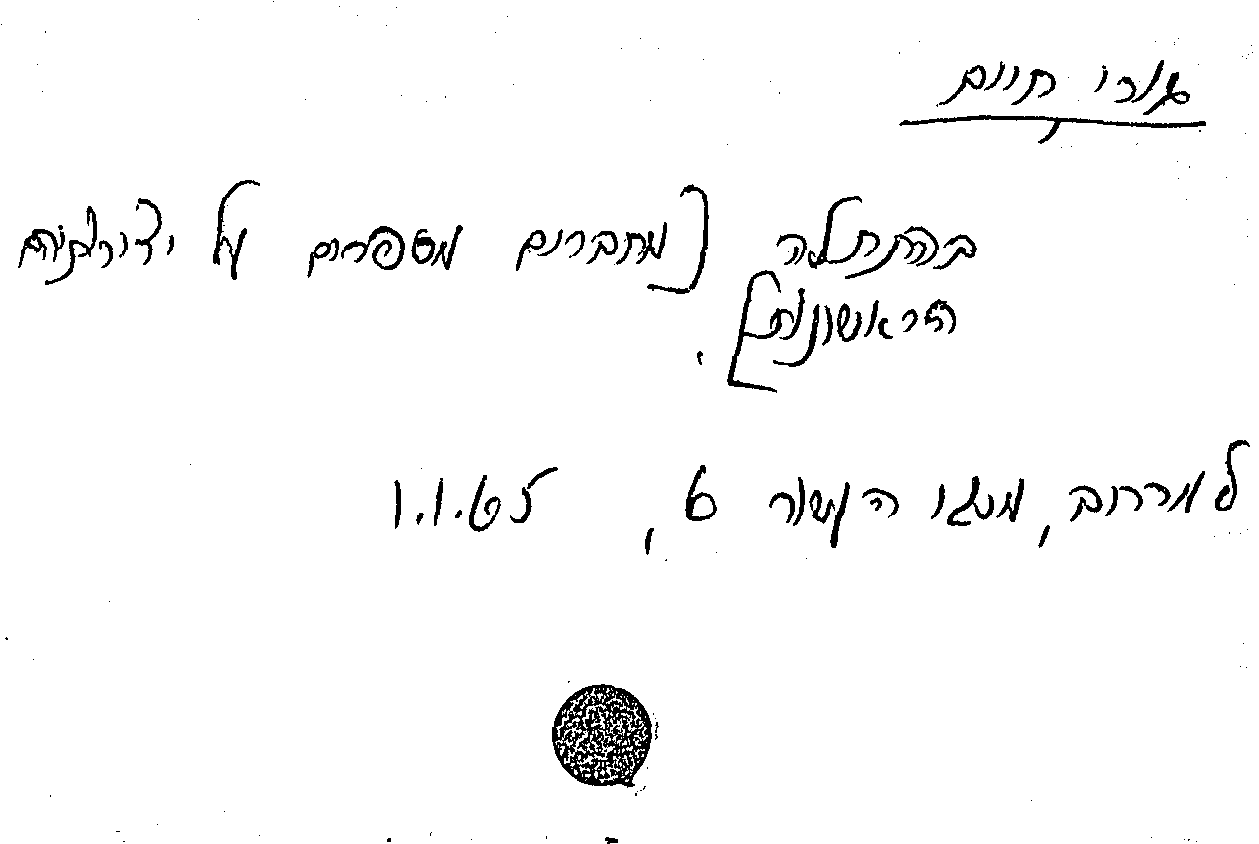 גורי חיים,
בהתחלה [מחברים מספרים על יצירותיהם
הראשונות].
למרחב, משא הקשר 6, 1.1.65